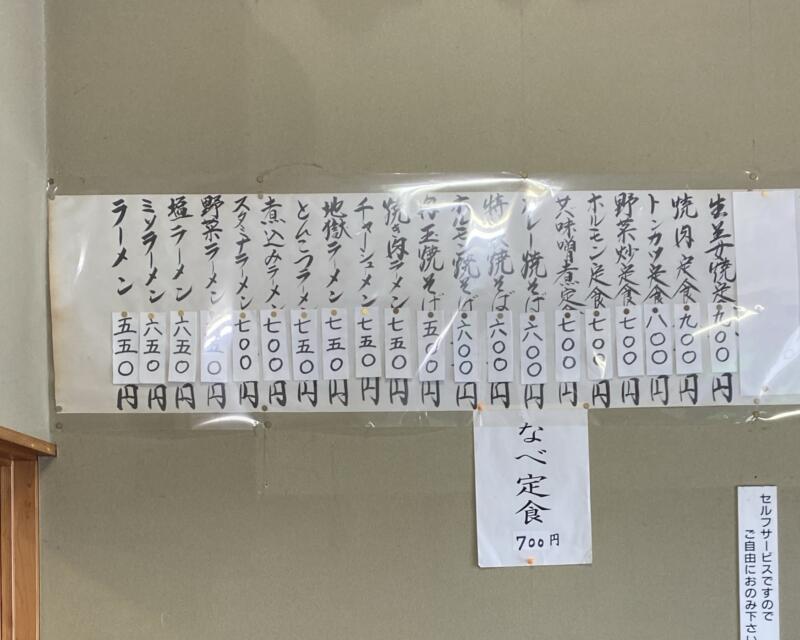 生姜焼定九〇〇円
焼肉定食九〇〇円
トンカツ定食八〇〇円
野菜炒定食七〇〇円
ホルモン定食七〇〇円
味噌煮定七〇〇円
カレー焼そば六〇〇円
特製焼そば六〇〇円
焼そば六〇〇円
玉焼そば五〇〇円
焼き肉ラーメン七五〇円
チャーシューメン七五〇円
地獄ラーメン七五〇円
とんこつラーメン七五〇円
煮込みラーメン七〇〇円
スタミナラーメン七〇〇円
野菜ラーメン五〇円
塩ラーメン六五〇円
ミソラーメン六五〇円
ラーメン五五〇円
なべ定食
700円
セルフサービスですので
ご自由におのみ下さい